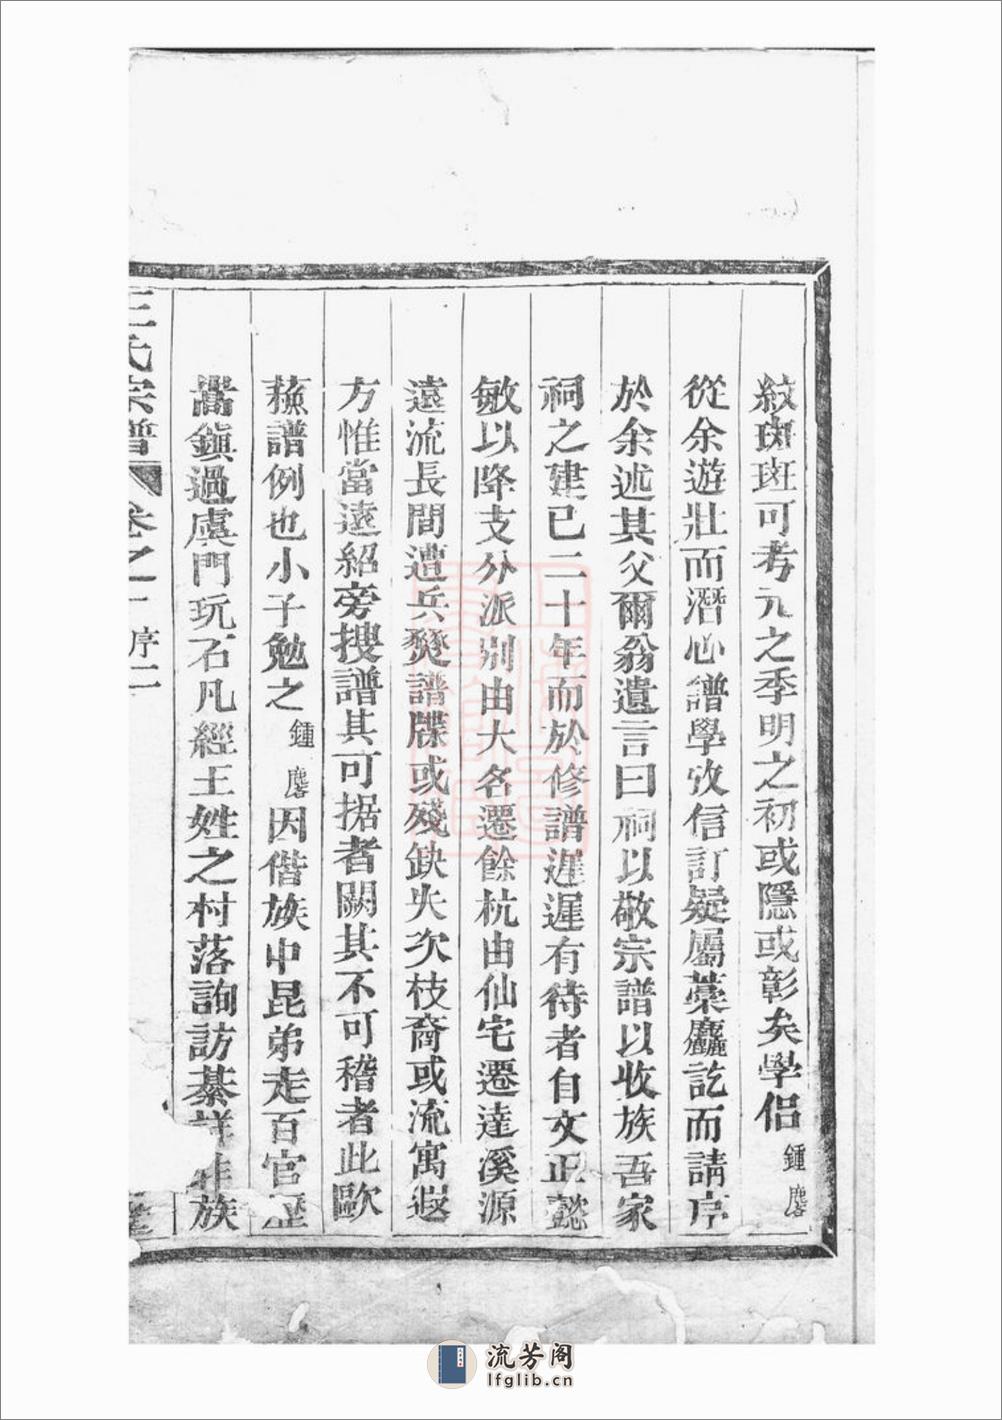 紋斑斑可考元之季明之初或隱或彰矣學侶鍾麐
從余遊壯而潛心譜學攷信訂疑屬藁麤訖而請序
於余述其父爾翁遺言曰祠以敬宗譜以收族吾家
祠之建已二十年而於修譜遲遲有待者自文正懿
敏以降支分派別由大名遷餘杭由仙宅遷達溪源
遠流長間遭兵燹譜牒或殘缺失次枝裔或流寓遐
方惟當遠紹旁搜譜其可據者闕其不可稽者此歐
蘓譜例也小子勉之鍾麐因偕族中昆弟走百官歷
嵩鎮過虞門玩石凡經王姓之村落詢訪綦詳非族
王氏宗譜 卷之一 序二
流芳阁
lfglib.cn